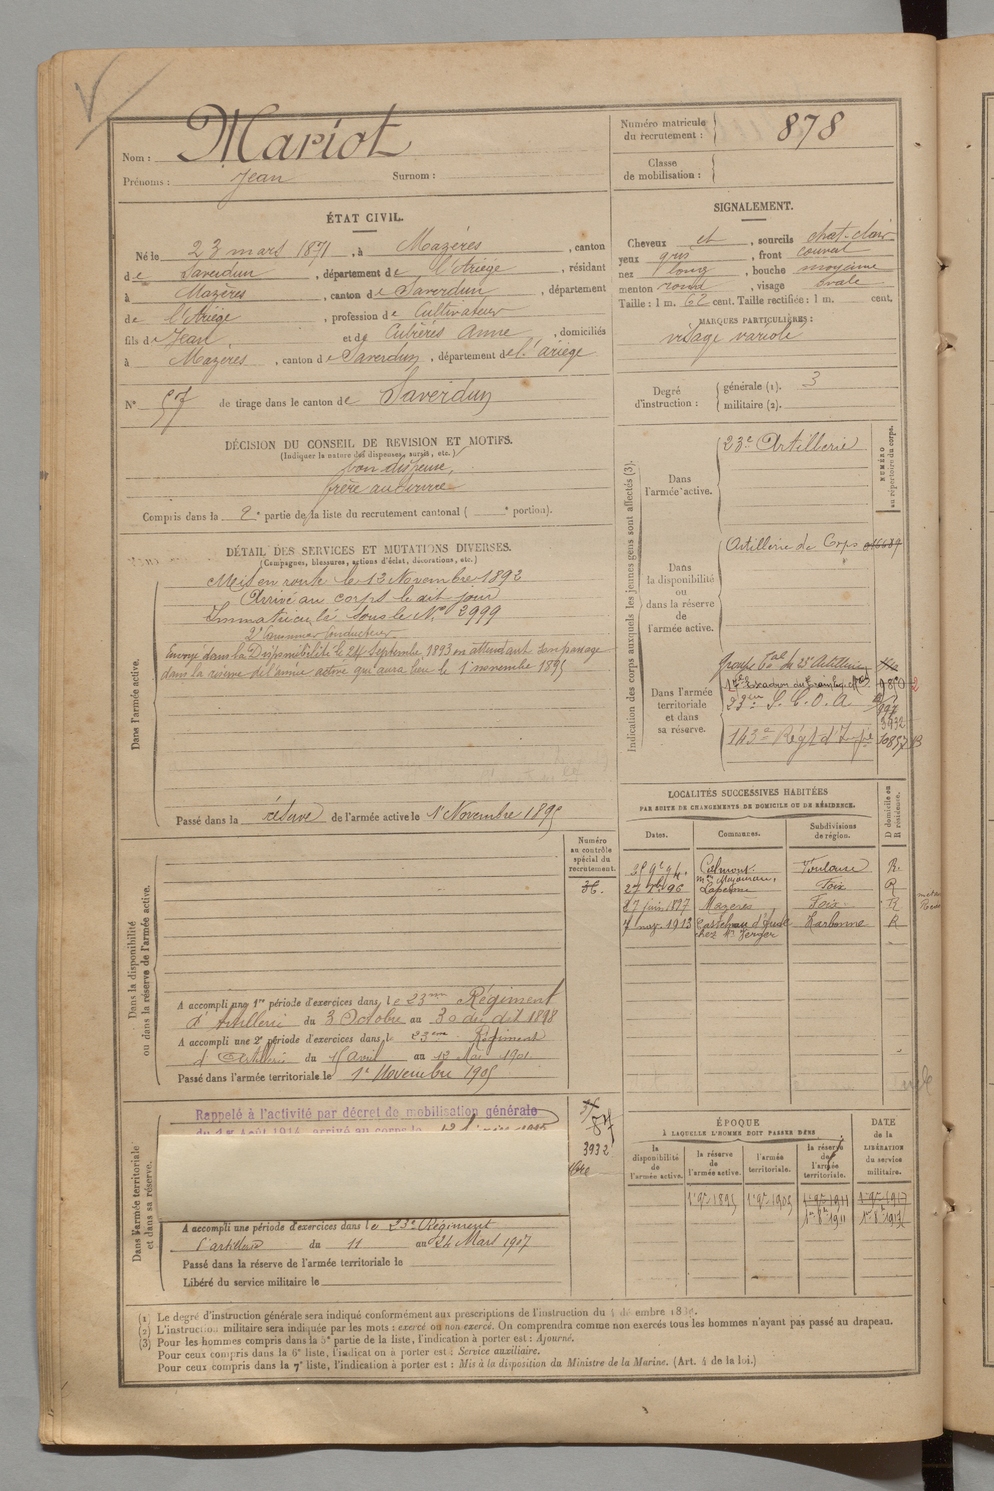 Nom : Mariot
Prénoms : Jean Surnom :
Numéro matricule du recrutement : 878
Classe de mobilisation :
ÉTAT CIVIL.
Né le 23 mars 1871, à Mazères, canton
de Saverdun, département de l'Ariège, résidant
à Mazères, canton de Saverdun, département
de l'Ariège, profession de Cultivateur
fils de Jean et de Cubières Anne, domiciliés
à Mazères, canton de Saverdun, département de l'ariège
N° 57 de tirage dans le canton de Saverdun
SIGNALEMENT.
Cheveux et, sourcils chat-clair
yeux gris, front couvert
nez long, bouche moyenne
menton rond, visage ovale
Taille : 1 m. 62 cent. Taille rectifiée : 1 m. cent.
MARQUES PARTICULIÈRES :
visage variolé
Degré d'instruction : générale (1). 3
militaire (2).
DÉCISION DU CONSEIL DE REVISION ET MOTIFS.
(Indiquer la nature des dispenses, sursis, etc.)
bon dispensé,
frère au service
Compris dans la 2e partie de la liste du recrutement cantonal ( e portion).
DÉTAIL DES SERVICES ET MUTATIONS DIVERSES.
(Campagnes, blessures, actions d'éclat, décorations, etc.)
Dans l'armée active.
Mis en route le 12 Novembre 1892
Arrivé au corps le dit jour
Immatriculé sous le N° 2999
2e Canonnier Conducteur
Envoyé dans la Disponibilité le 24 Septembre 1893 en attendant son passage
dans la réserve de l'armée active qui aura lieu le 1er novembre 1895
Passé dans la réserve de l'armée active le 1er Novembre 1895
Indication des corps auxquels les jeunes gens sont affectés (3).
NUMÉRO au répertoire du corps.
Dans l'armée active.
23e Artillerie
Dans la disponibilité ou dans la réserve de l'armée active.
Artillerie de Corps
Dans l'armée territoriale et dans sa réserve.
Groupe Tal du 23e Artillerie
17e Escadron du Train
143e Régt d'Infie
LOCALITÉS SUCCESSIVES HABITÉES
PAR SUITE DE CHANGEMENTS DE DOMICILE OU DE RÉSIDENCE.
Dates. Communes. Subdivisions de région. D domicile ou R résidence.
Calmont Toulouse R.
Foix R
27 juin 1897 Mazères Foix R
1913 Castelnau d'Aude Narbonne R
Numéro au contrôle spécial du recrutement.
36.
Dans la disponibilité ou dans la réserve de l'armée active.
A accompli une 1re période d'exercices dans le 23me Régiment
d'Artillerie du 3 Octobre au 30 du dit 1898
A accompli une 2e période d'exercices dans le 23eme Régiment
d'Artillerie du 15 Avril au 12 Mai 1901
Passé dans l'armée territoriale le 1er Novembre 1905
Dans l'armée territoriale et dans sa réserve.
Rappelé à l'activité par décret de mobilisation générale
3932
A accompli une période d'exercices dans le 23e Régiment
d'artillerie du 11 au 24 Mars 1907
Passé dans la réserve de l'armée territoriale le
Libéré du service militaire le
ÉPOQUE
À LAQUELLE L'HOMME DOIT PASSER DANS
la disponibilité de l'armée active. la réserve de l'armée active. l'armée territoriale. la réserve de l'armée territoriale.
DATE de la LIBÉRATION du service militaire.
(1) Le degré d'instruction générale sera indiqué conformément aux prescriptions de l'instruction du
(2) L'instruction militaire sera indiquée par les mots : exercé ou non exercé. On comprendra comme non exercés tous les hommes n'ayant pas passé au drapeau.
(3) Pour les hommes compris dans la 5e partie de la liste, l'indication à porter est : Ajourné.
Pour ceux compris dans la 6e liste, l'indication à porter est : Service auxiliaire.
Pour ceux compris dans la 7e liste, l'indication à porter est : Mis à la disposition du Ministre de la Marine. (Art. 4 de la loi.)